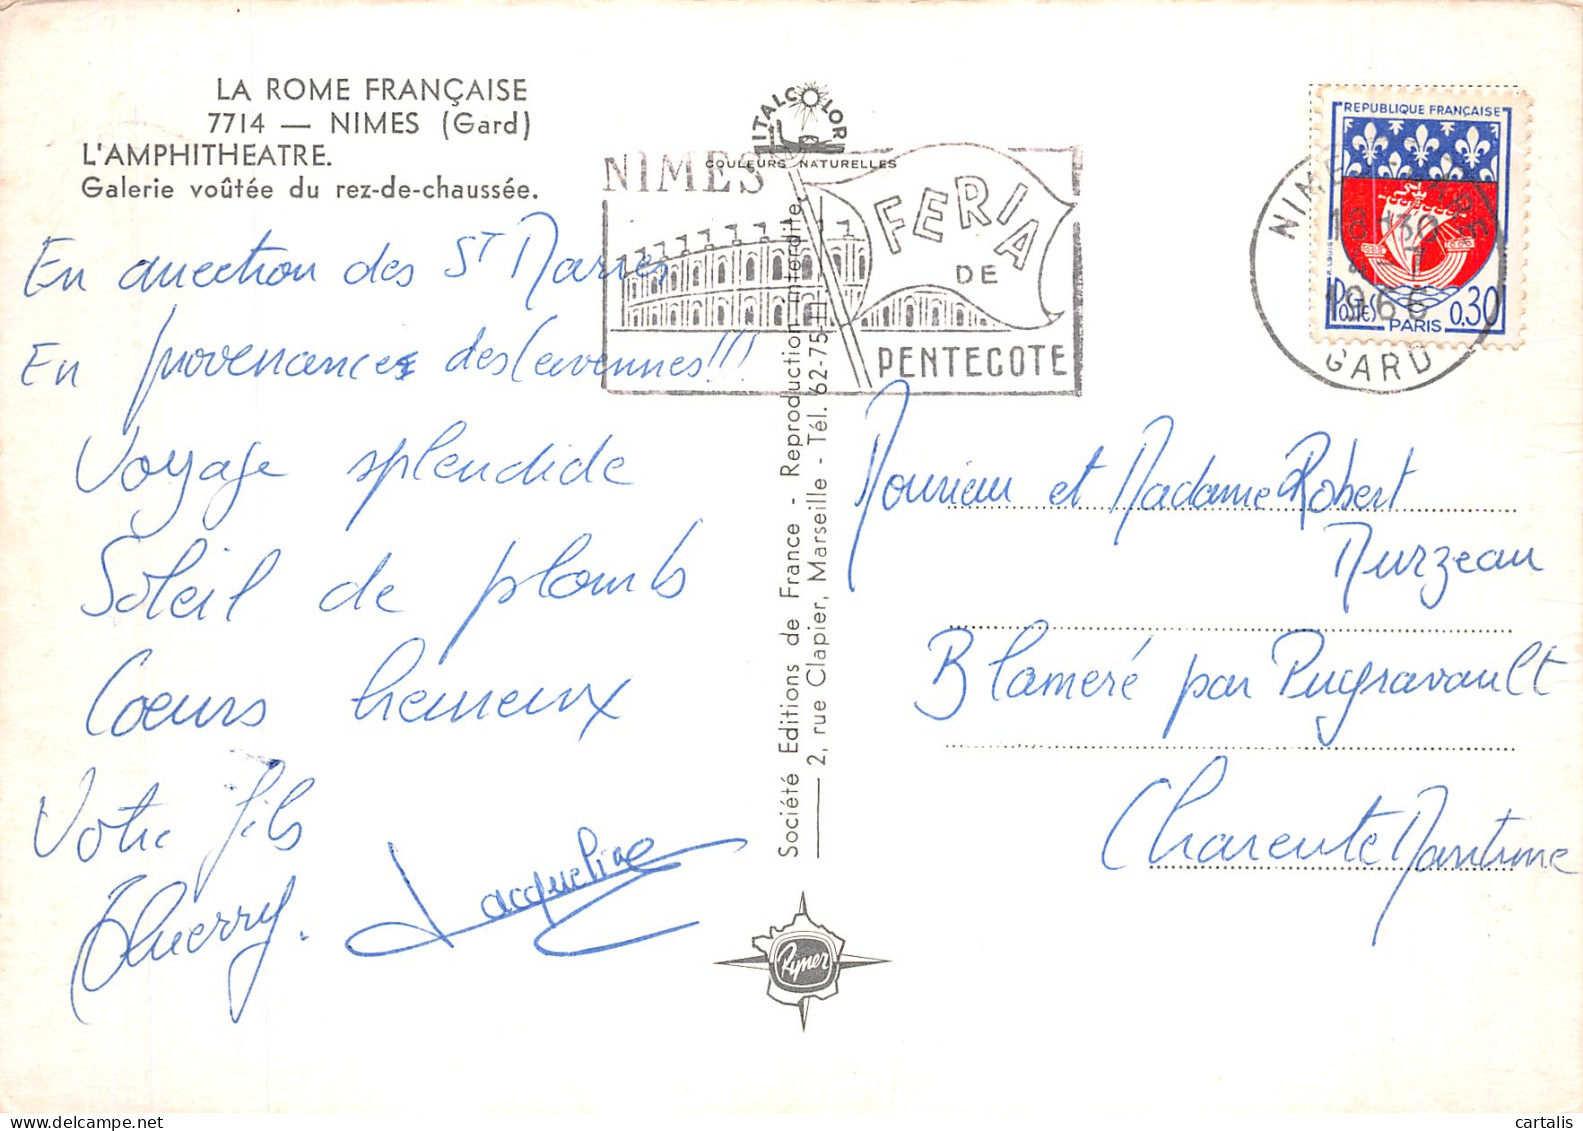 LA ROME FRANÇAISE
7714 — NIMES (Gard)
L'AMPHITHEATRE.
Galerie voûtée du rez-de-chaussée.
En direction des St Maries
En provenance des Cevennes!!!
Voyage splendide
Soleil de plomb
Coeurs heureux
Votre fils
Thierry. Jacqueline
ITALCOLOR
COULEURS NATURELLES
NIMES
FERIA
DE
PENTECOTE
Société Editions de France - Reproduction interdite
2, rue Clapier, Marseille - Tél. 62-75-11
Rymer
REPUBLIQUE FRANÇAISE
POSTES
PARIS
0,30
NIMES GARE
18 H30
4 - 7
1966
GARD
Monsieur et Madame Robert
Murzeau
Blameré par Puygravault
Charente Maritime
cartalis